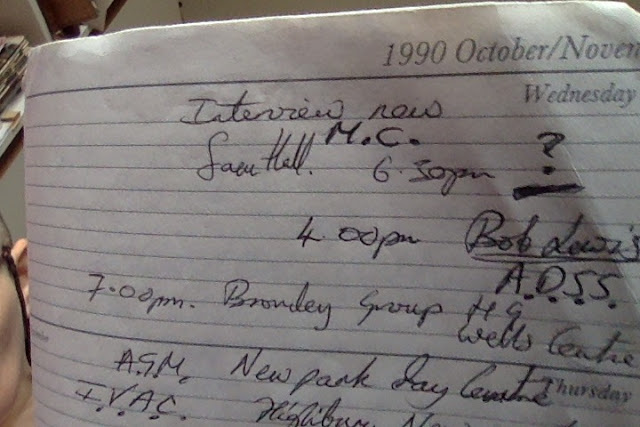 1990 October/Novem
Wednesday
Interview now
M.C.
6.30pm ?
4.00pm Bob Lewis's
A.D.S.S.
7.00pm. Bromley Group HG
Wells Centre
A.G.M. New park Day Centre
Thursday
I.V.A.C.